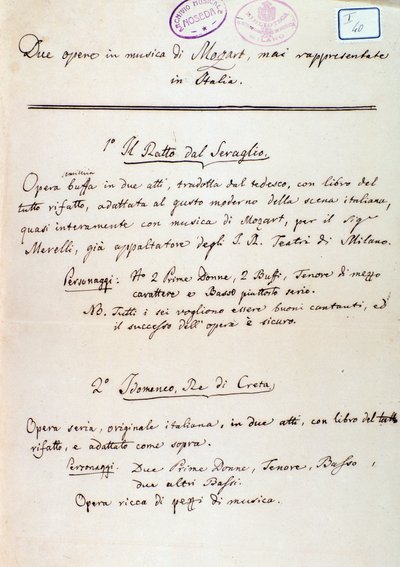 ARCHIVIO MUSICALE
NOSEDA
MILANO
I
40
Due opere in musica di Mozart, mai rappresentate
in Italia.
1º Il Ratto dal Seraglio,
Opera buffa in due atti, tradotta dal tedesco, con libro del
tutto rifatto, adattata al gusto moderno della scena italiana,
quasi interamente con musica di Mozart, per il Sigr
Merelli, già appaltatore degli I. R. Teatri di Milano.
Personaggi: Nº 2 Prime Donne, 2 Buffi, Tenore di mezzo
carattere e Basso piuttosto serio.
NB. Tutti i sei vogliono essere buoni cantanti, ed
il successo dell'opera è sicuro.
2º Idomeneo, Re di Creta,
Opera seria, originale italiana, in due atti, con libro del tutto
rifatto, e adattato come sopra.
Personaggi: Due Prime Donne, Tenore, Basso,
due altri Bassi.
Opera ricca di pezzi di musica.